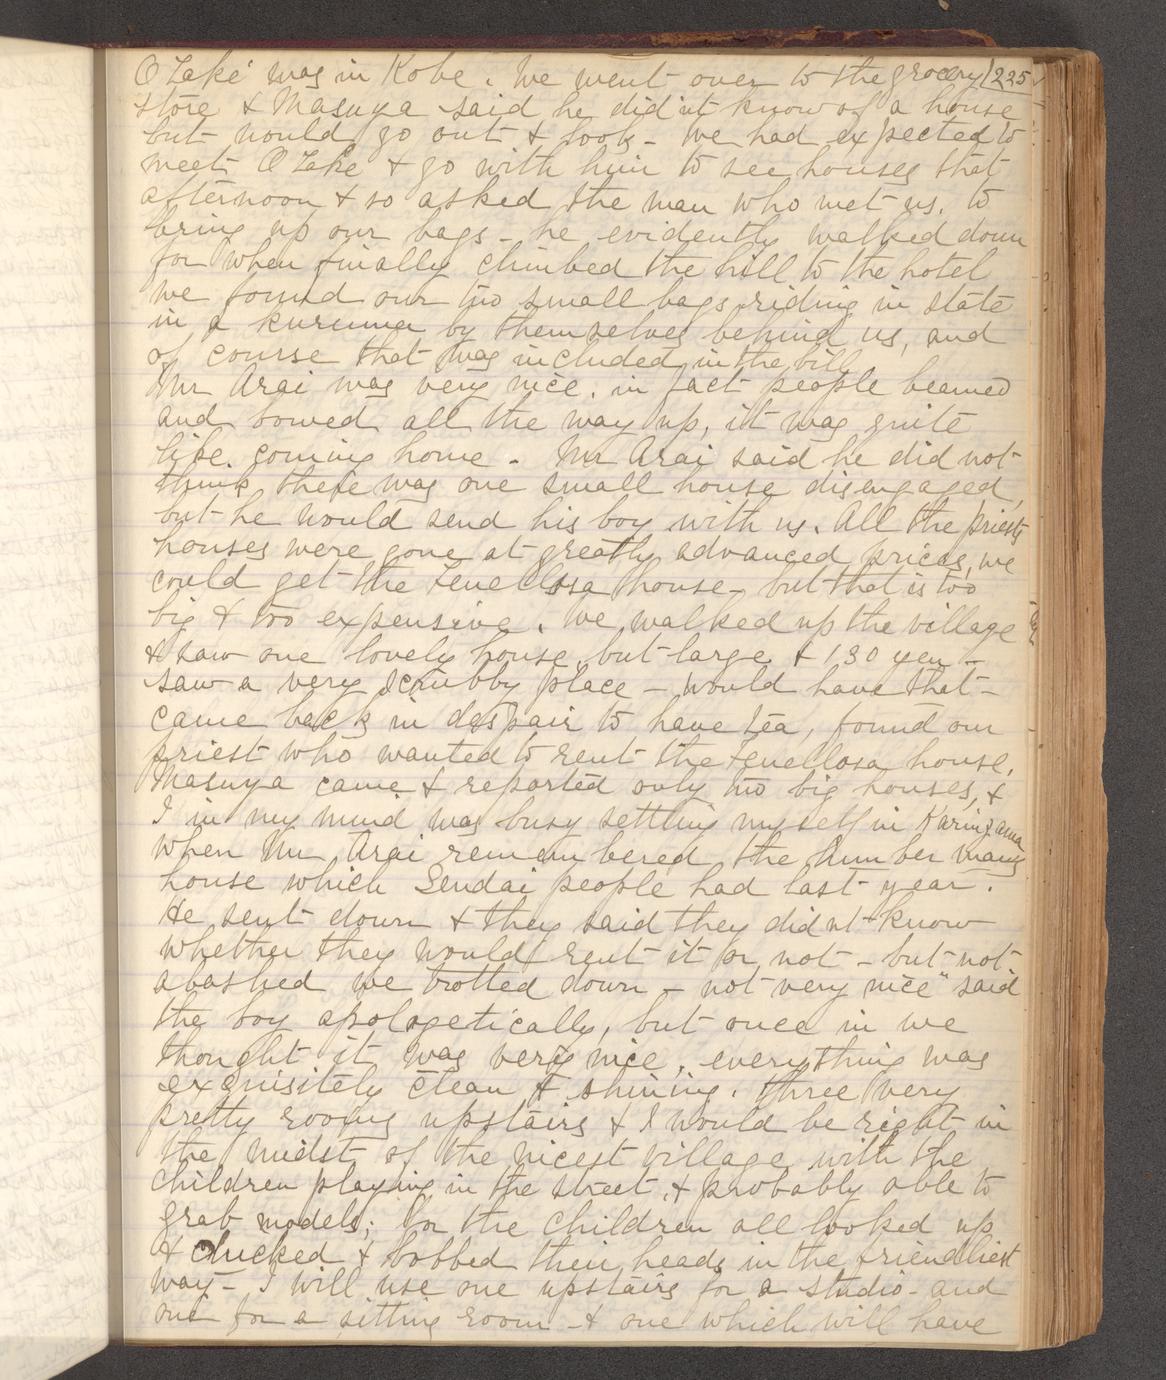 O Také was in Kobe. We went over to the grocery 225
store & Masuya said he did'nt know of a house
but would go out & look - We had expected to
meet O Take & go with him to see houses that
afternoon & so asked the man who met us, to
bring up our bags - he evidently walked down
for when finally climbed the hill to the hotel
we found our two small bags riding in state
in a kuruma by themselves behind us, and
of course that was included in the bill
Mr Arai was very nice, in fact people beamed
and bowed all the way up, it was quite
like coming home - Mr Arai said he did not
think there was one small house disengaged,
but he would send his boy with us. All the priests
houses were gone at greatly advanced prices, we
could get the Fenellosa house - but that is too
big & too expensive. We walked up the village
& saw one lovely house, but large & 130 yen -
saw a very scrubby place - would have that -
came back in despair to have tea, found our
priest who wanted to rent the Fenellosa house.
Masuya came & reported only two big houses, &
I in my mind was busy settling myself in Karuizawa
when Mr Arai remembered the lumber mans
house which Sendai people had last year.
He sent down & they said they did nt know
whether they would rent it or not - but not
abashed we trotted down - not very nice" said
the boy apologetically, but once in we
thought it was very nice, everything was
exquisitely clean & shining. Three very
pretty rooms upstairs & I would be right in
the midst of the nicest village with the
children playing in the street, & probably able to
grab models; for the children all looked up
& chucked & bobbed their heads in the friendliest
way - I will use one upstairs for a studio - and
one for a sitting room - & one which will have